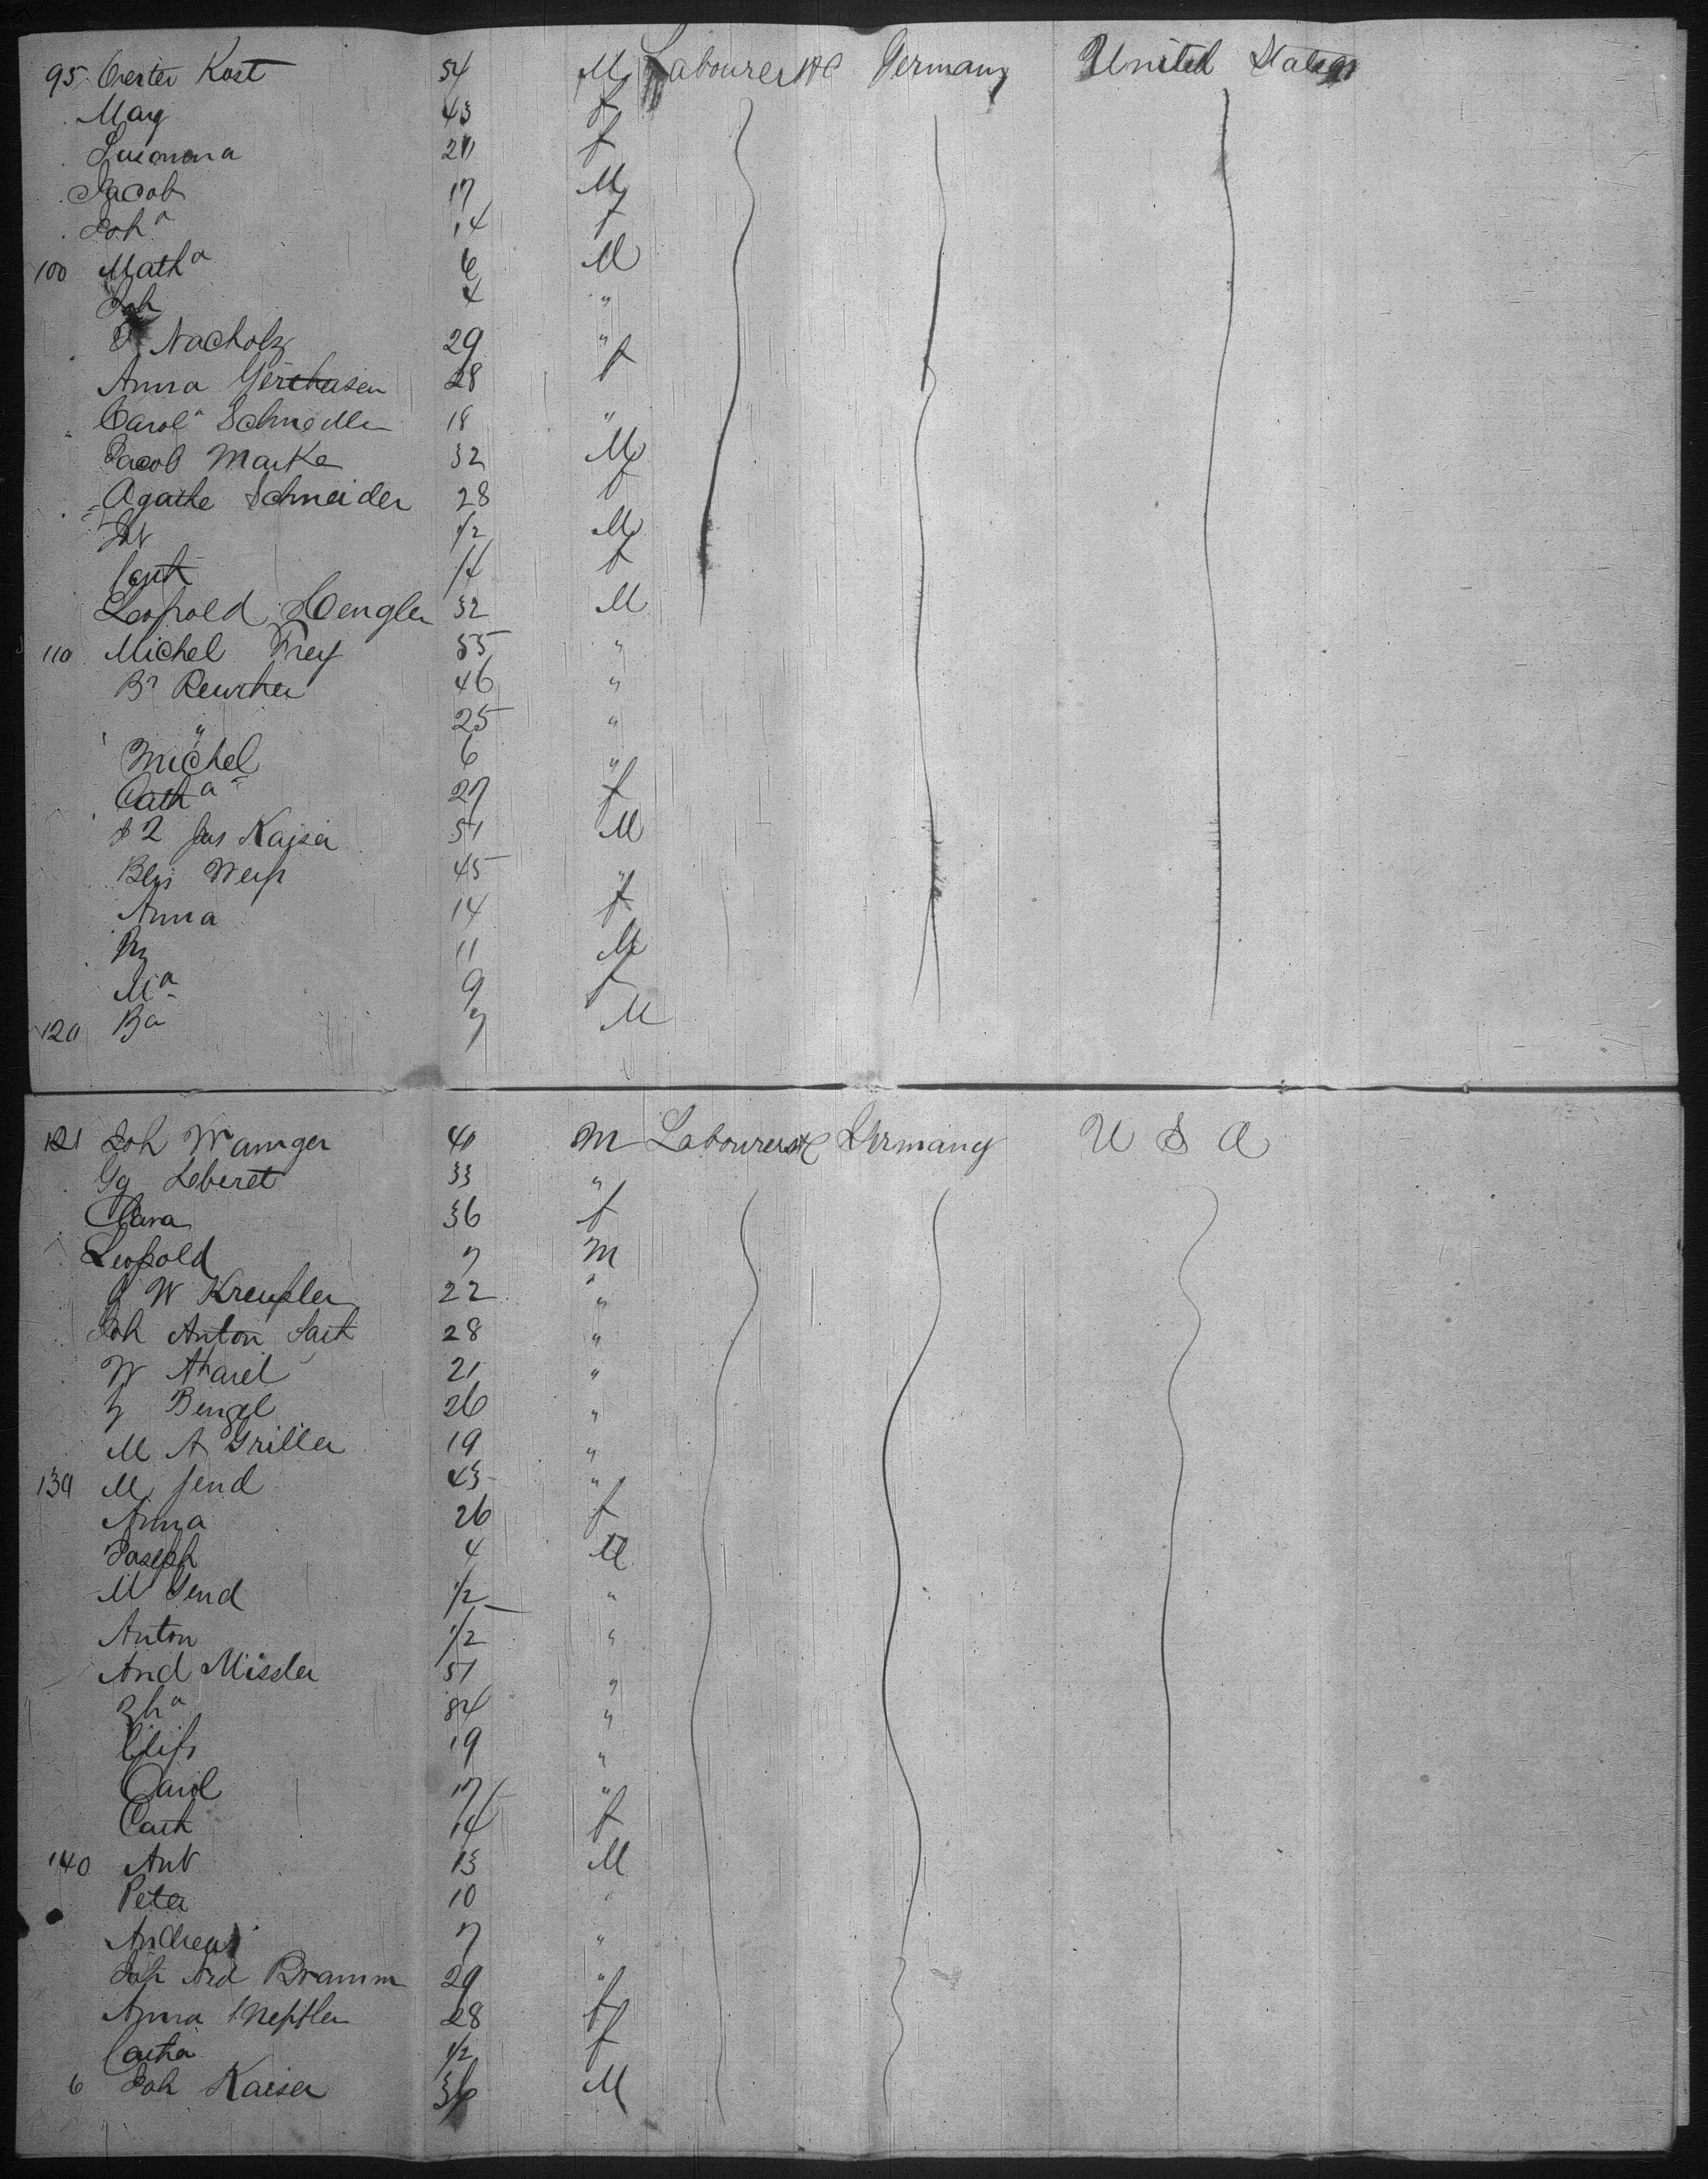 95 Kost 54 M Labourer &c Germany United States
Mary 43 f
Susanna 20 f
Jacob 17 M
Joh a 14 f
100 Math a 6 M
Joh 4 "
Nacholz 29 "
Anna 28 f
Carol a 18 "
Jacob Marke 32 M
Agathe Schneider 28 f
1/2 M
f
Leopold Hengler 32 M
110 Michel Frey 55 "
46 "
" 25 "
Michel 6 "
Cath a 27 f
Jos Kaiser 51 M
45 "
Anna 14 f
11 M
M a 9 f
120 Ba 7 M
121 Joh Wanger 40 M Labourer &c Germany U S A
Gg Leberet 33 "
Clara 36 f
Leopold 7 M
W 22 "
Joh Anton 28 "
W 21 "
Bengel 26 "
M A Griller 19 "
130 M Jend 43 "
Anna 26 f
Joseph 4 M
M Jend 1/2 "
Anton 1/2 "
And Missler 51 "
"
19 "
Carol 17 "
Cath 14 f
140 Ant 13 M
Peter 10 "
Andreas 7 "
Joh Bramm 29 "
Anna 28 f
Catha 1/2 f
6 Joh Kaiser 36 M